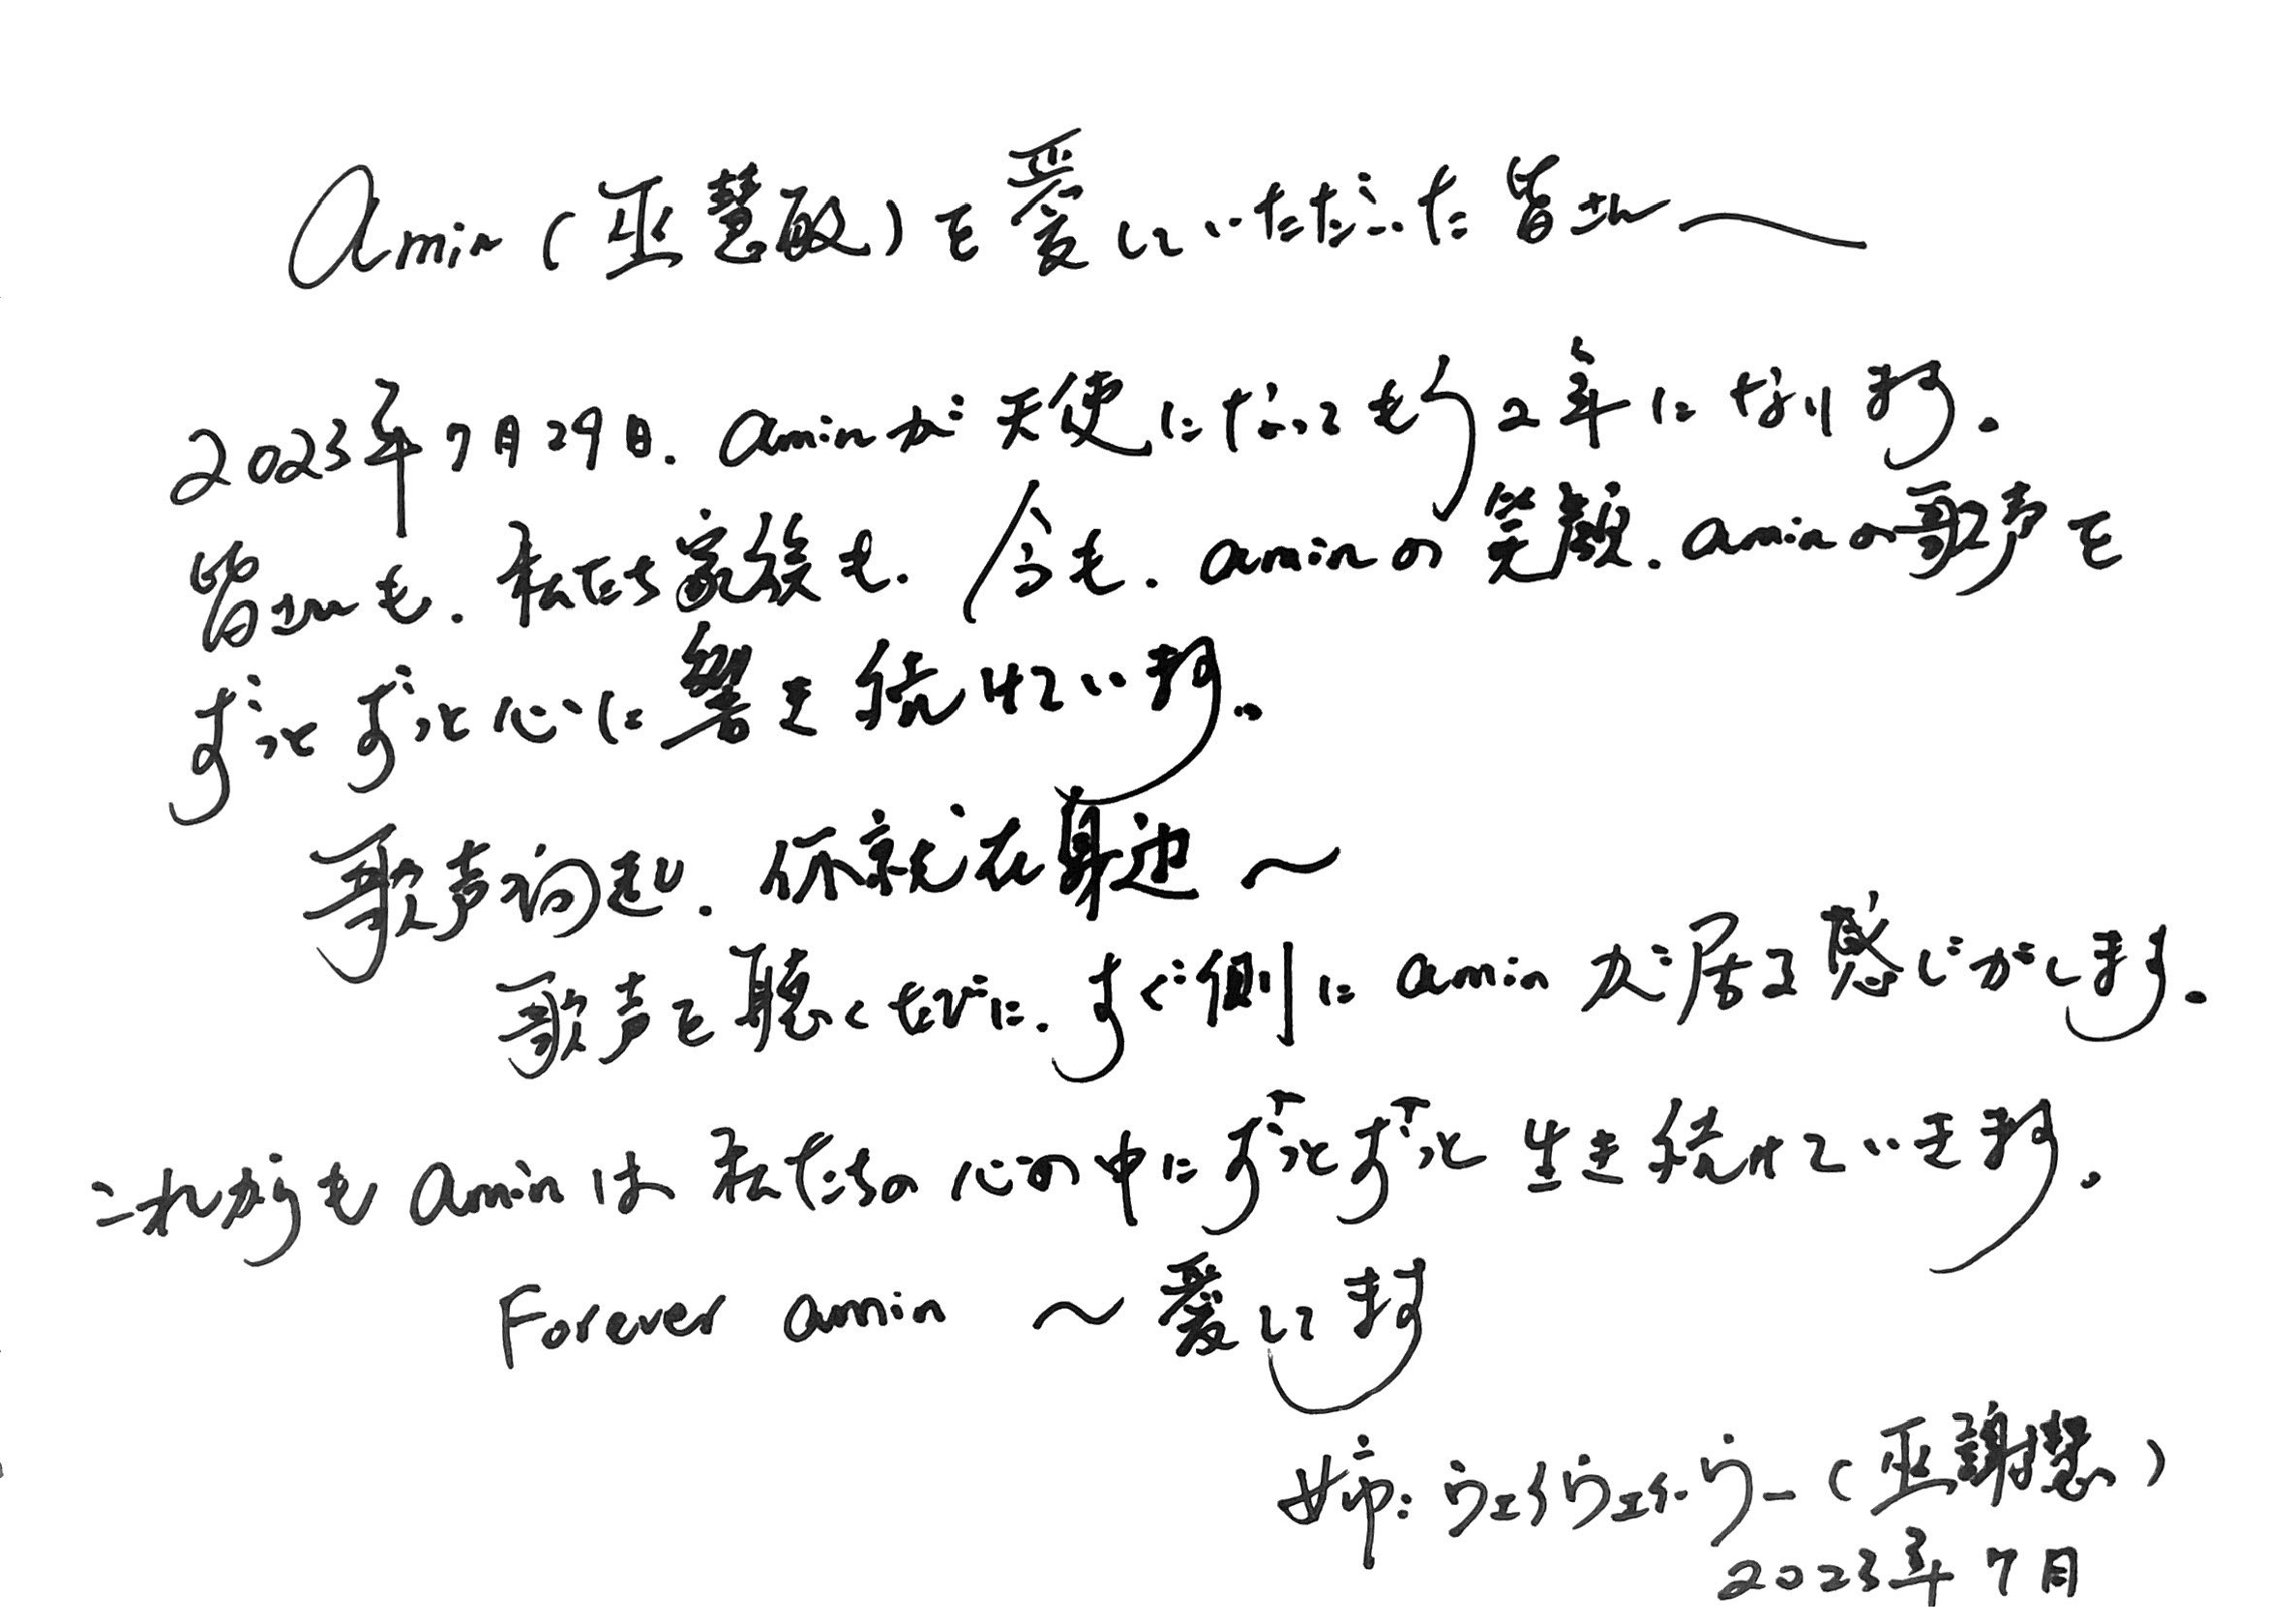 amin(巫慧敏)を愛していただいた皆さん〜
2023年7月29日.aminが天使になってもう2年になります.
皆さんも.私たち家族も.今も.aminの笑顔.aminの歌声を
ずっとずっと心に響き続けています。
歌声响起.你就在身边〜
歌声を聴くたびに.すぐ側にaminが居る感じがします.
これからもaminは私たちの心の中にずっとずっと生き続けていきます.
Forever amin 〜愛してます
姉:ウェイウェイ・ウー(巫謝慧)
2023年7月